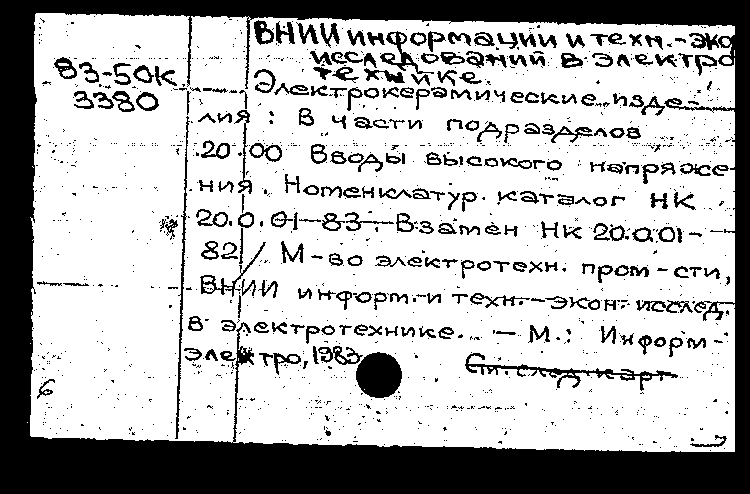 ВНИИ информации и техн.-эко
исследований в электро
технике.
83-50К
3380
Электрокерамические изде-
лия : В части подразделов
20.00 Вводы высокого напряже-
ния. Номенклатур. каталог НК
20.0.01-83. Взамен НК 20.0.01-
82 / М-во электротехн. пром-сти,
ВНИИ информ. и техн.-экон. исслед.
в электротехнике. - М.: Информ-
электро, 1983
См. след. карт
6